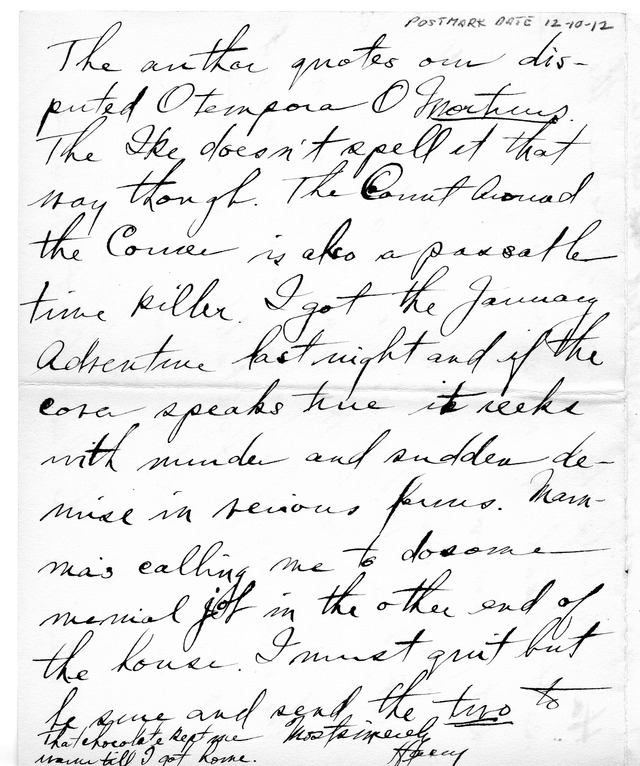 POSTMARK DATE 12-10-12
The author quotes our dis-
puted O tempora O Mortuus.
The Ike doesn't spell it that
way though. The Count Around
the Corner is also a passable
time killer. I got the January
Adventure last night and if the
cover speaks true it reeks
with murder and sudden de-
mise in various forms. Mam-
ma's calling me to do some
menial job in the other end of
the house. I must quit but
be sure and send the two to
that chocolate kept me Most sincerely
warm till I got home. Harry